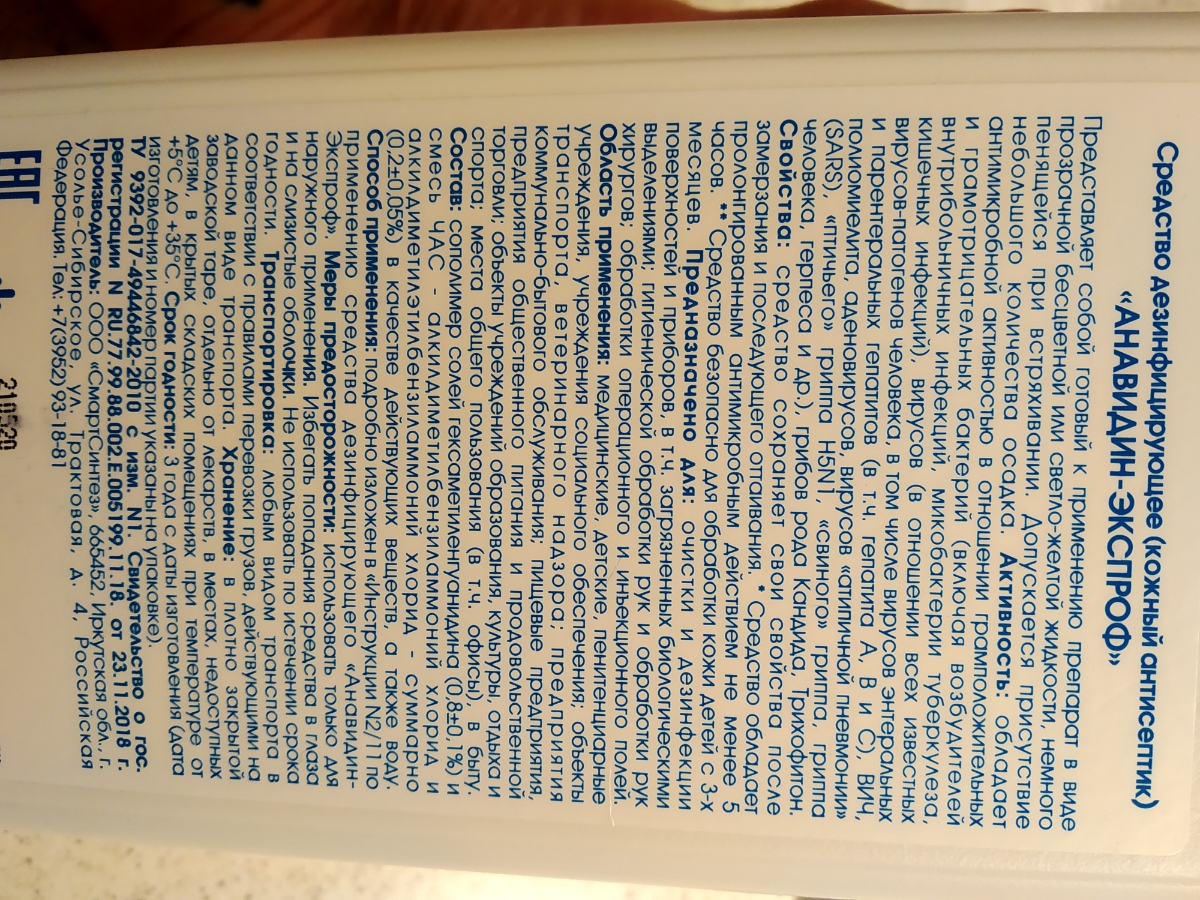 Средство дезинфицирующее (кожный антисептик)
«АНАВИДИН-ЭКСПРОФ»
Представляет собой готовый к применению препарат в виде
прозрачной бесцветной или светло-желтой жидкости, немного
пенящейся при встряхивании. Допускается присутствие
небольшого количества осадка. Активность: обладает
антимикробной активностью в отношении грамположительных
и грамотрицательных бактерий (включая возбудителей
внутрибольничных инфекций, микобактерии туберкулеза,
кишечных инфекций), вирусов (в отношении всех известных
вирусов-патогенов человека, в том числе вирусов энтеральных
и парентеральных гепатитов (в т.ч. гепатита А, В и С), ВИЧ,
полиомиелита, аденовирусов, вирусов «атипичной пневмонии»
(SARS), «птичьего» гриппа H5N1, «свиного» гриппа, гриппа
человека, герпеса и др.), грибов рода Кандида, Трихофитон.
Свойства: средство сохраняет свои свойства после
замерзания и последующего оттаивания. * Средство обладает
пролонгированным антимикробным действием не менее 5
часов. ** Средство безопасно для обработки кожи детей с 3-х
месяцев. Предназначено для: очистки и дезинфекции
поверхностей и приборов, в т.ч. загрязненных биологическими
выделениями; гигиенической обработки рук и обработки рук
хирургов; обработки операционного и инъекционного полей.
Область применения: медицинские, детские, пенитенциарные
учреждения, учреждения социального обеспечения; объекты
транспорта, ветеринарного надзора; предприятия
коммунально-бытового обслуживания; пищевые предприятия,
предприятия общественного питания и продовольственной
торговли; объекты учреждений образования, культуры, отдыха и
спорта; места общего пользования (в т.ч. офисы), в быту.
Состав: сополимер солей гексаметиленгуанидина (0,8±0,1%) и
смесь ЧАС - алкилдиметилбензиламмоний хлорид и
алкилдиметилэтилбензиламмоний хлорид - суммарно
(0,2±0,05%) в качестве действующих веществ, а также воду.
Способ применения: подробно изложен в «Инструкции N2/11 по
применению средства дезинфицирующего «Анавидин-
Экспроф». Меры предосторожности: использовать только для
наружного применения. Избегать попадания средства в глаза
и на слизистые оболочки. Не использовать по истечении срока
годности. Транспортировка: любым видом транспорта в
соответствии с правилами перевозки грузов, действующими на
данном виде транспорта. Хранение: в плотно закрытой
заводской таре, отдельно от лекарств, в местах, недоступных
детям, в крытых складских помещениях при температуре от
+5°С до +35°С. Срок годности: 3 года с даты изготовления (дата
изготовления и номер партии указаны на упаковке).
ТУ 9392-017-49446842-2010 с изм. N1. Свидетельство о гос.
регистрации N RU.77.99.88.002.Е.005199.11.18. от 23.11.2018 г.
Производитель: ООО «СмартСинтез», 665452, Иркутская обл., г.
Усолье-Сибирское, ул. Трактовая, д. 4, Российская
Федерация. Тел.: +7(3952) 93-18-81
EAC
210520